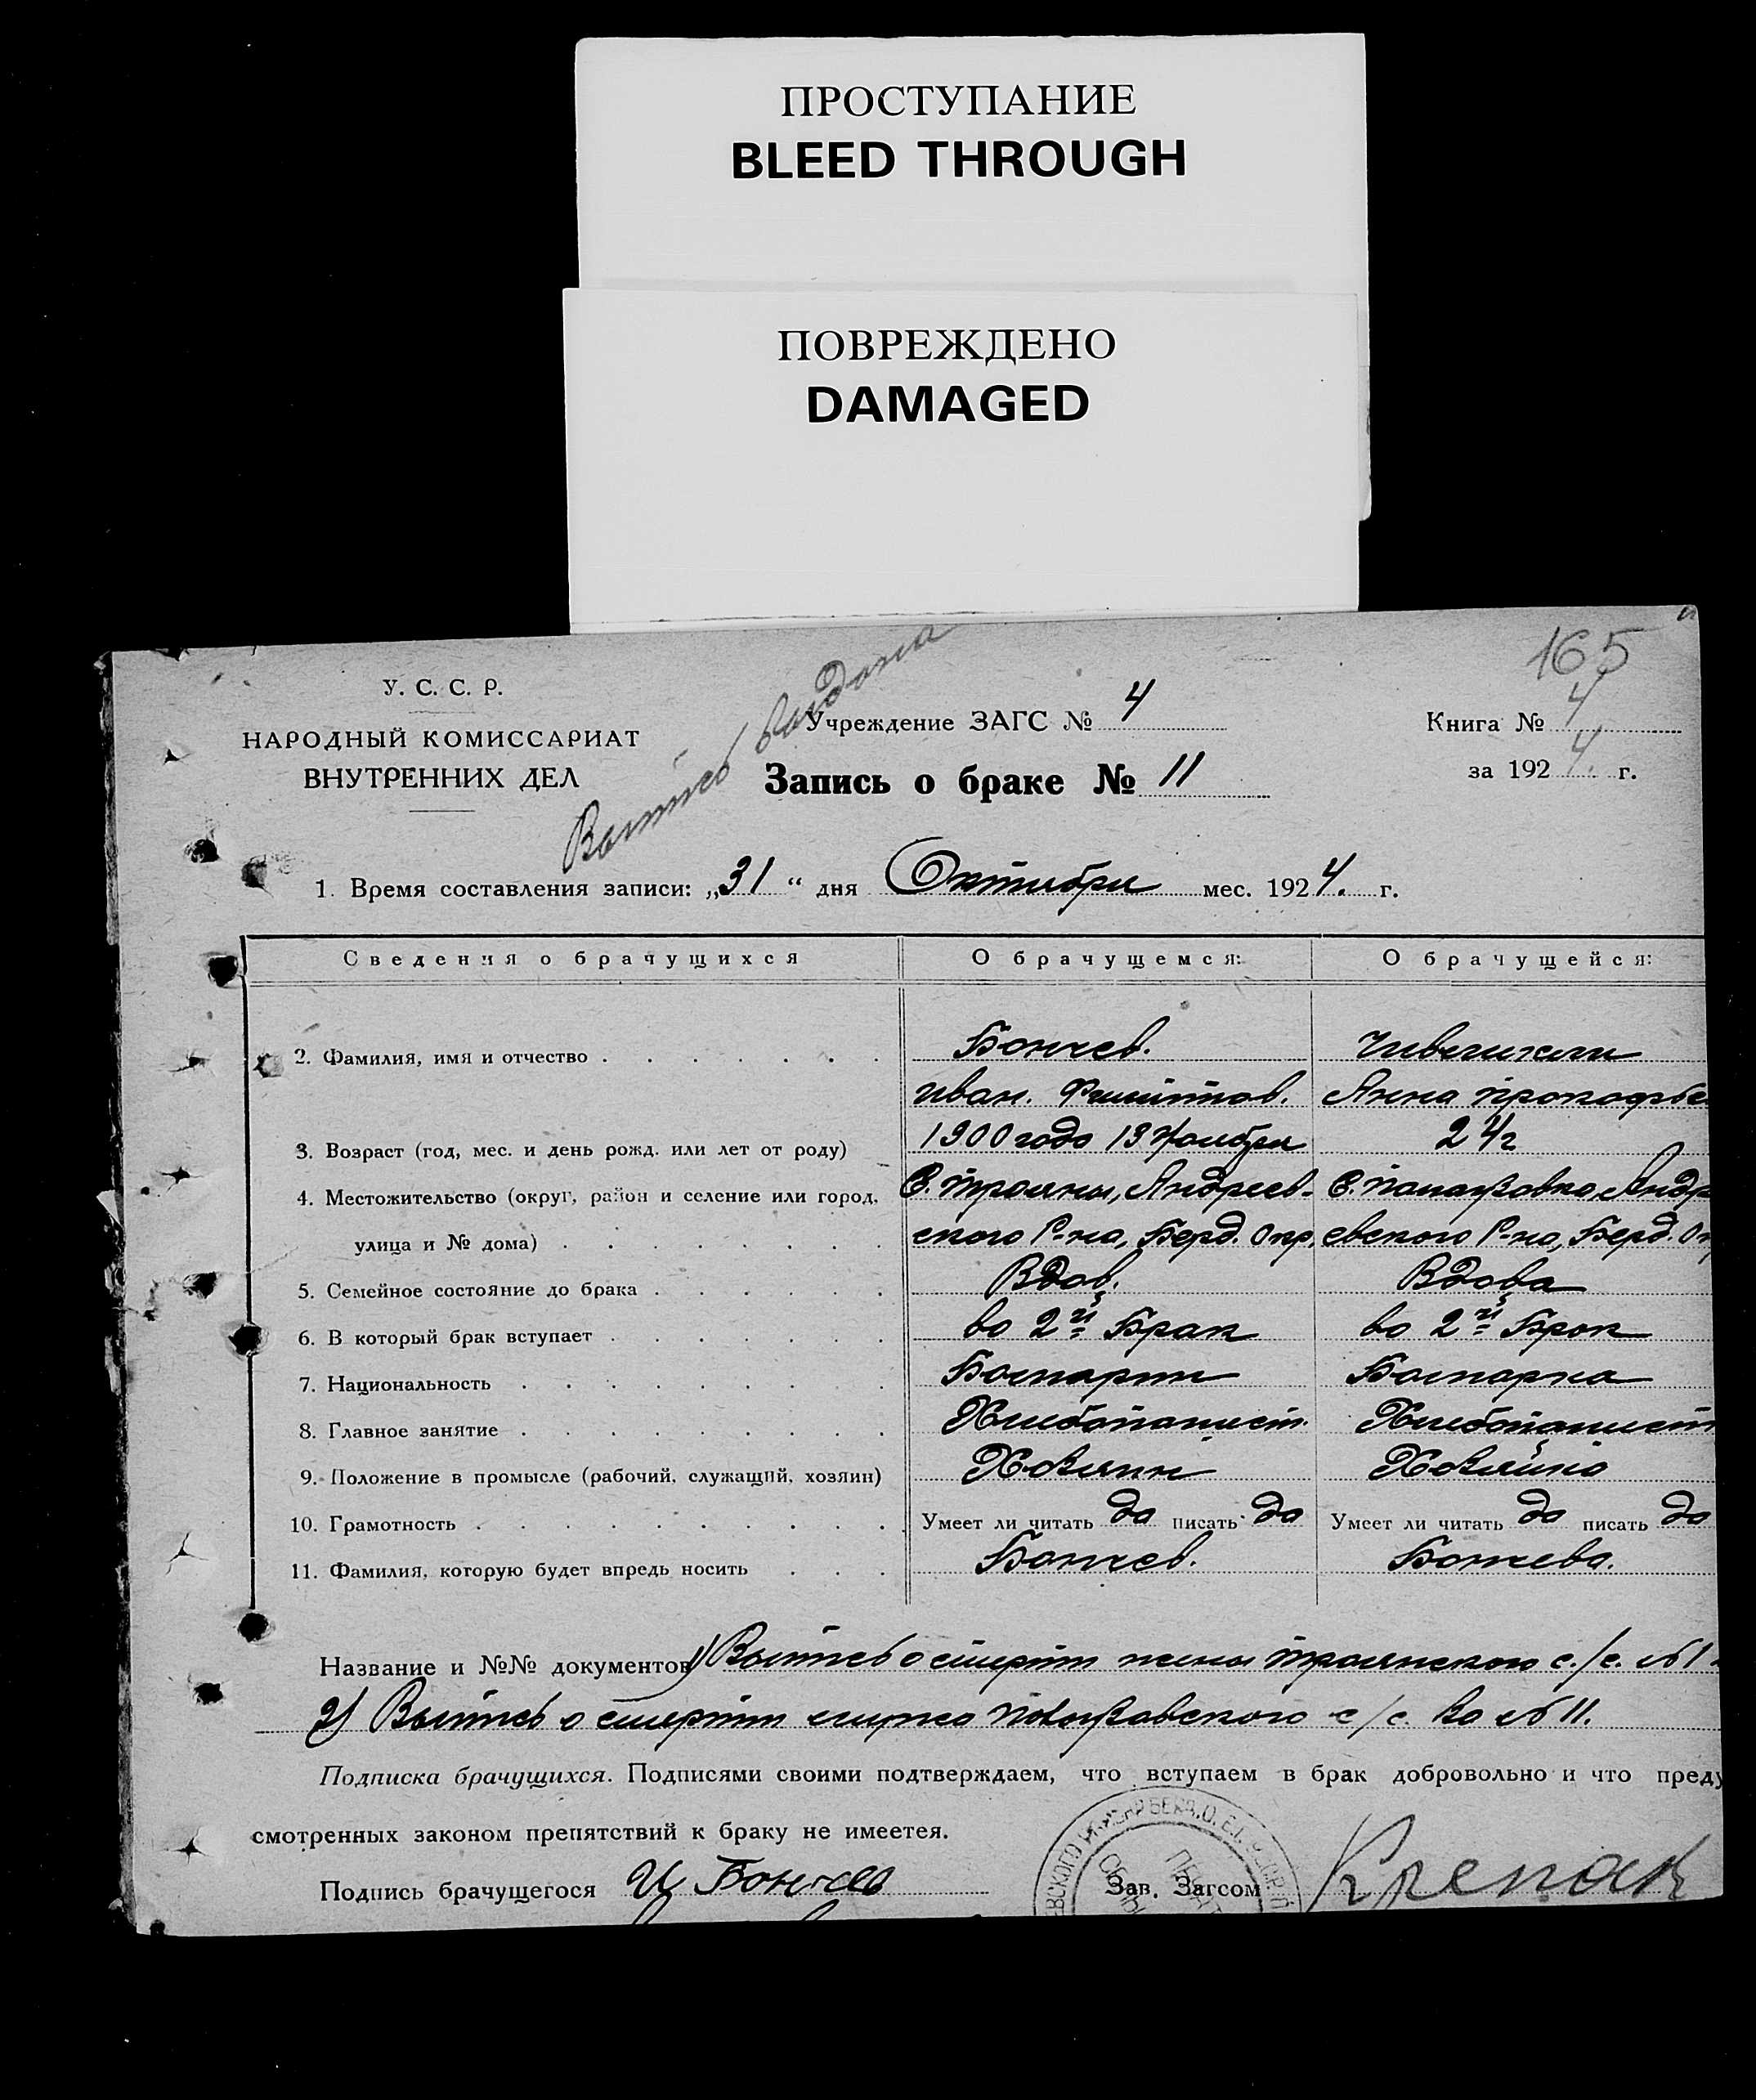 ПРОСТУПАНИЕ
BLEED THROUGH
ПОВРЕЖДЕНО
DAMAGED
165
У. С. С. Р.
НАРОДНЫЙ КОМИССАРИАТ
ВНУТРЕННИХ ДЕЛ
Выпись выдана
Учреждение ЗАГС № 4
Книга № 4
за 1924. г.
Запись о браке № 11
1. Время составления записи: „31“ дня Октября мес. 1924. г.
Сведения о брачущихся О брачущемся: О брачущейся:
2. Фамилия, имя и отчество Бончев.
Иван. Филиппов. Анна Прокофье
3. Возраст (год, мес. и день рожд. или лет от роду) 1900 года 13 Ноября 24 г
4. Местожительство (округ, район и селение или город, С. Трояны, Андреев- С. Андр
улица и № дома) ского Р-на, Берд. Окр, евского Р-на, Берд. Ок
5. Семейное состояние до брака Вдов. Вдова
6. В который брак вступает во 2й Брак во 2й Брак
7. Национальность Болгарин Болгарка
8. Главное занятие Хлебопашест. Хлебопашест
9. Положение в промысле (рабочий, служащий, хозяин) Хозяин Хозяйка
10. Грамотность Умеет ли читать да писать да Умеет ли читать да писать да
11. Фамилия, которую будет впредь носить Бончев. Бончева.
Название и №№ документов 1) Выпись о смерти жены Троянского с./с. №1
2) Выпись о смерти мужа с/с. За №11.
Подписка брачущихся. Подписями своими подтверждаем, что вступаем в брак добровольно и что преду
смотренных законом препятствий к браку не имеется.
Подпись брачущегося И Бончев Зав. Загсом